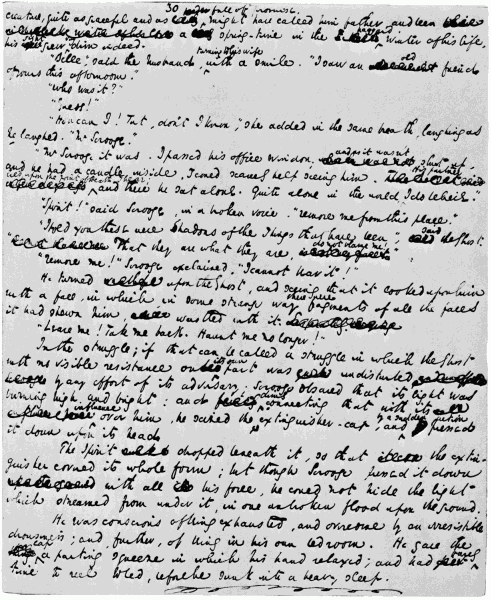 30
creature, quite as graceful and as full of promise, might have called him father, and been
a spring-time in the haggard winter of his life,
his sight grew dim indeed.
"Belle," said the husband, turning to his wife with a smile. "I saw an old friend
of yours this afternoon."
"Who was it?"
"Guess!"
"How can I! Tut, don't I know," she added in the same breath, laughing as
he laughed. "Mr Scrooge."
"Mr Scrooge it was. I passed his office window, and as it was not shut up,
and he had a candle inside, I could scarcely help seeing him. His partner
lies upon the point of death I hear
and there he sat alone. Quite alone in the world, I do believe."
"Spirit!" said Scrooge, in a broken voice. "remove me from this place."
"I told you these were shadows of the things that have been," said the Ghost.
"That they are what they are, do not blame me!"
"Remove me!" Scrooge exclaimed. "I cannot bear it!"
He turned upon the Ghost, and seeing that it looked upon him
with a face in which in some strange way, there were fragments of all the faces
it had shewn him, wrestled with it.
"Leave me! Take me back. Haunt me no longer!"
In the struggle; if that can be called a struggle in which the Ghost
with no visible resistance on its own part was undisturbed
by any effort of its adversary; Scrooge observed that its light was
burning high and bright; and dimly connecting that with its
influence over him, he seized the extinguisher-cap, and by a sudden action pressed
it down upon its head.
The Spirit dropped beneath it, so that the extin-
guisher covered its whole form; but though Scrooge pressed it down
with all his force, he could not hide the light
which streamed from under it, in one unbroken flood upon the ground.
He was conscious of being exhausted, and overcome by an irresistible
drowsiness; and further, of being in his own bedroom. He gave the
cap a parting squeeze in which his hand relaxed; and had barely
time to reel to bed, before he sank into a heavy sleep.